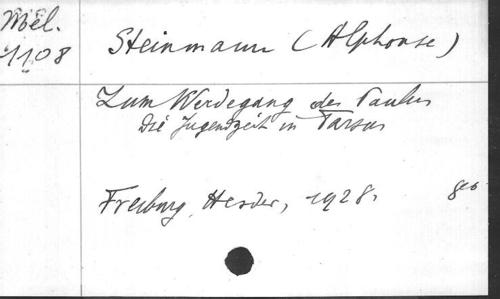 Mél.
1108
Steinmann (Alphonse)
Zum Werdegang des Paulus
Die Jugendzeit in Tarsus
Freiburg, Herder, 1928.